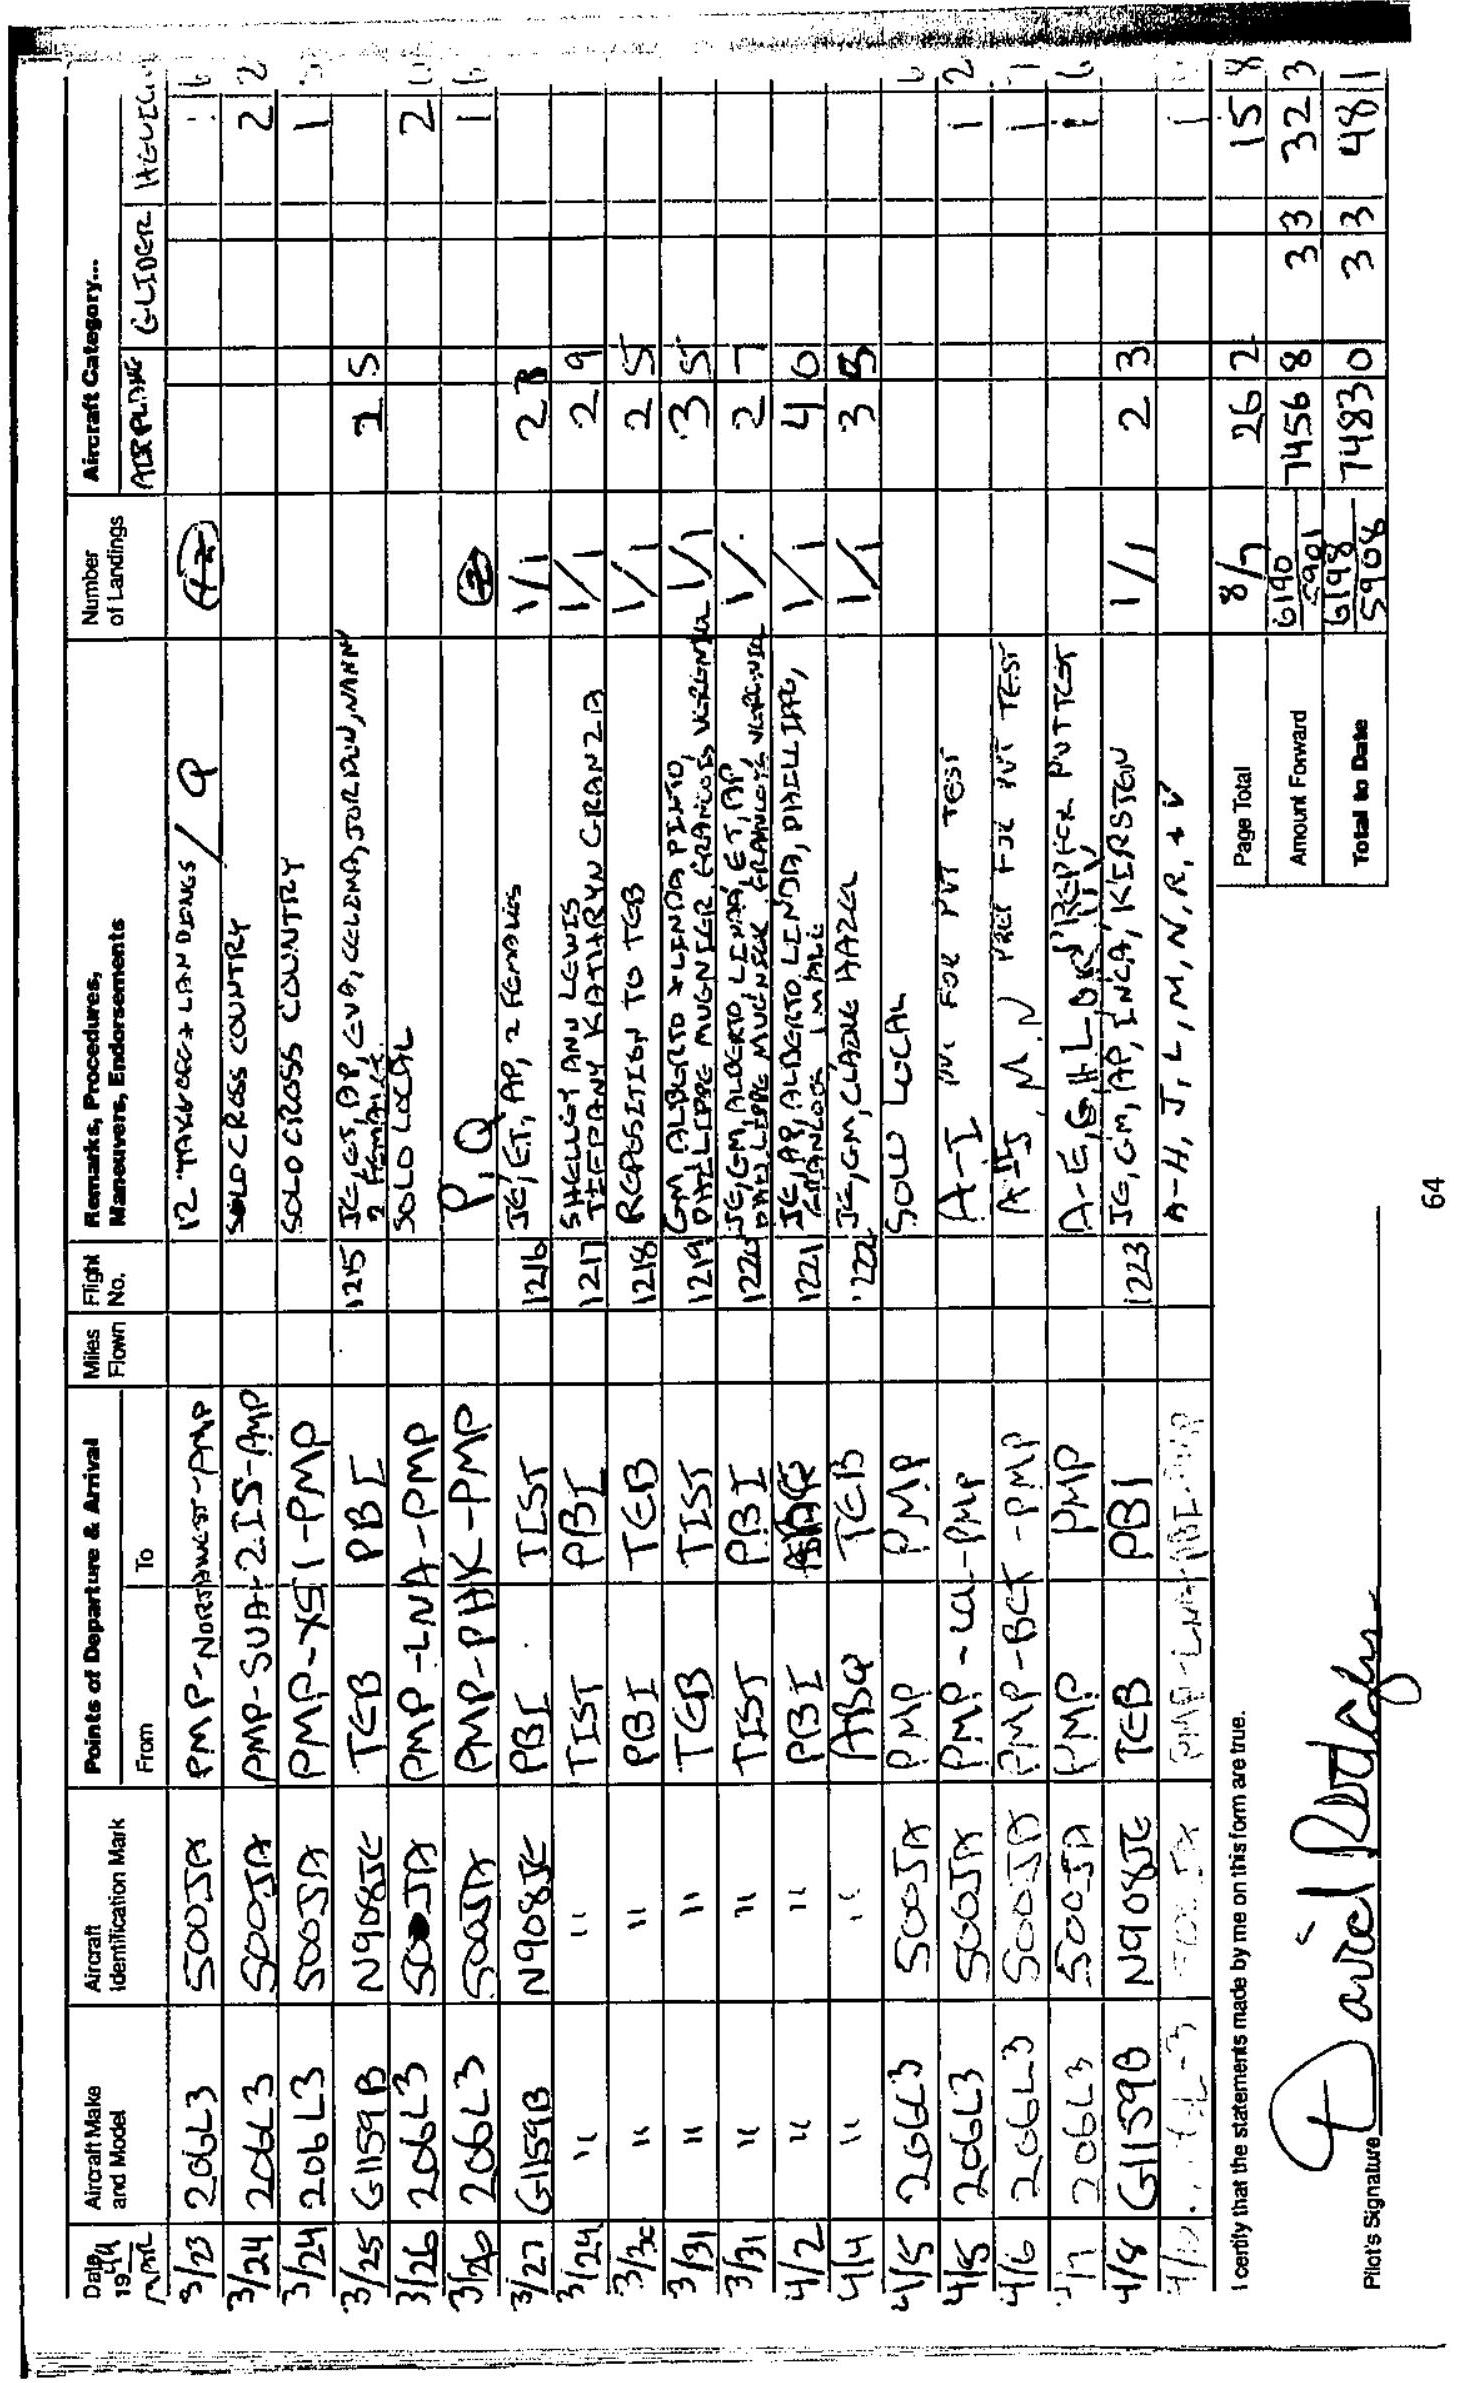 Date 1999 MAR
Aircraft Make and Model
Aircraft Identification Mark
Points of Departure & Arrival
From To
Miles Flown
Flight No.
Remarks, Procedures, Maneuvers, Endorsements
Number of Landings
Aircraft Category...
AIRPLANE GLIDER
3/23 206L3 500JA PMP-NORTHWEST-PMP 12 TAKEOFF + LANDINGS / 9
3/24 206L3 500JA PMP-SUA+2IS-PMP SOLO CROSS COUNTRY 2 2
3/24 206L3 500JA PMP-X51-PMP SOLO CROSS COUNTRY 1
3/25 G1159B N908JE TEB PBI 1215 JE, ET, AP, EVA, CELINA, JORDAN, NANNY 2 FEMALES 2 5
3/26 206L3 500JA PMP-LNA-PMP SOLO LOCAL 2
3/26 206L3 500JA PMP-PHK-PMP P,Q 1 6
3/27 G1159B N908JE PBI TIST 1216 JE, ET, AP, 2 FEMALES 1/1 2
3/29 " " TIST PBI 1217 SHELLEY ANN LEWIS TIFFANY KATHRYN GRANZA 1/1 2 9
3/30 " " PBI TEB 1218 REPOSITION TO TEB 1/1 2 5
3/31 " " TEB TIST 1219 GM, ALBERTO + LINDA PINTO, PHILIPPE MUGNIER 1/1 3 5
3/31 " " TIST PBI 1220 JE, GM, ALBERTO, LINDA, ET, AP 1/1 2 7
4/2 " " PBI ABQ 1221 JE, AP, ALBERTO, LINDA, PHILLIPE, 1 MALE 1/1 4 0
4/4 " " ABQ TEB 1222 JE, GM, CLAIRE HAZEL 1/1 3
4/5 206L3 500JA PMP PMP SOLO LOCAL
4/5 206L3 500JA PMP- -PMP A-I FOR PVT TEST 1 2
4/6 206L3 500JA PMP-BCT-PMP M, N PREP FOR PVT TEST 1
4/7 206L3 500JA PMP PMP A-E, G, H, L PREP FOR PVT TEST 1 6
4/8 G1159B N908JE TEB PBI 1223 JE, GM, AP, INCA, KIRSTEN 1/1 2 3
A-H, J, L, M, N, R, + V
I certify that the statements made by me on this form are true.
Page Total 8/7 26 2 15 8
Amount Forward 6190 5901 7456 8 3 3 32 3
Total to Date 6198 5908 7483 0 3 3 48 1
Pilot's Signature David Rodgers
64